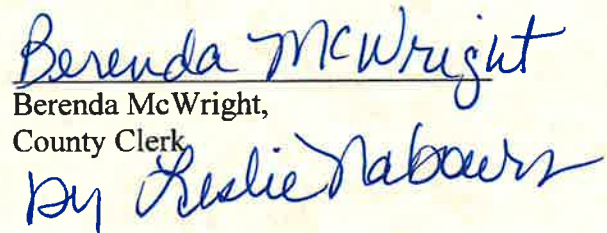 Berenda McWright
Berenda McWright,
County Clerk
by Leslie Nabours